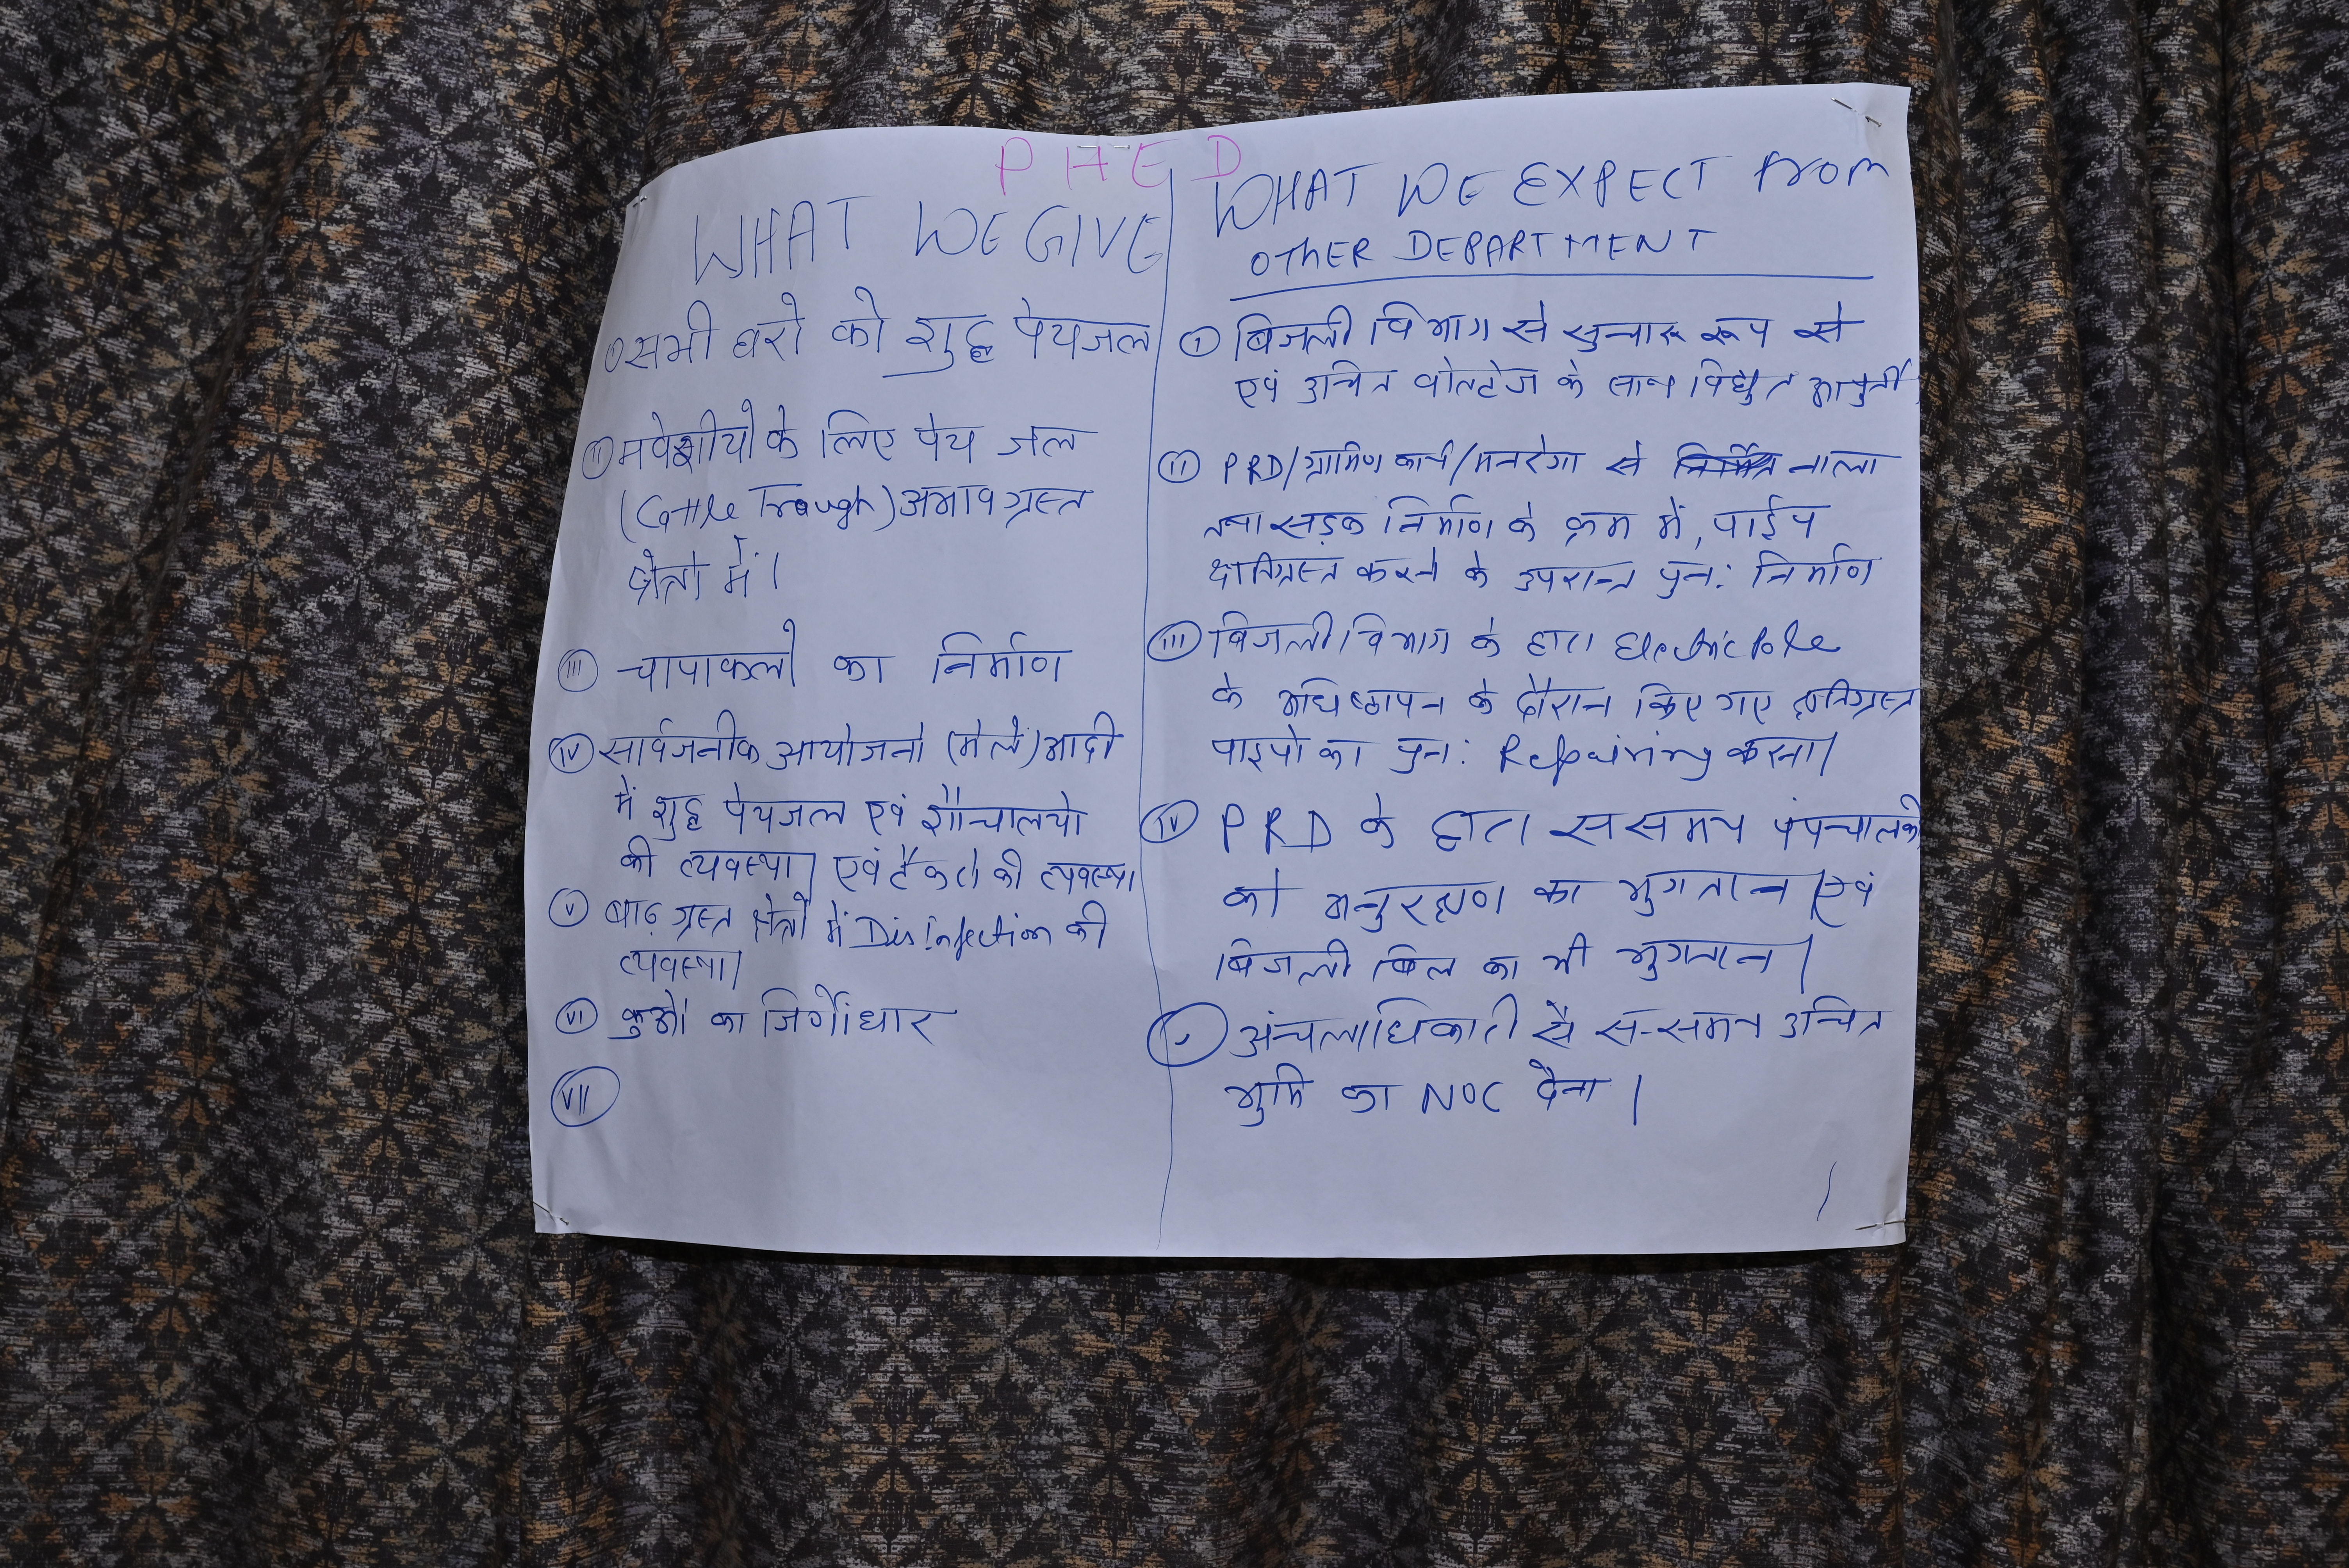 PHED
WHAT WE GIVE
① सभी घरो को शुद्ध पेयजल
ⅱ मवेशीयो के लिए पेय जल
(Cattle Trough) अभाव ग्रस्त
क्षेत्रो में।
ⅲ चापाकलो का निर्माण
ⅳ सार्वजनीक आयोजनो (मेले) आदी
में शुद्ध पेयजल एवं शौचालयो
की व्यवस्था। एवं टैंकरो की व्यवस्था
ⅴ बाढ़ ग्रस्त क्षेत्रों में Disinfection की
व्यवस्था।
ⅵ कुओं का जिर्णोधार
ⅶ
WHAT WE EXPECT From
OTHER DEPARTMENT
① बिजली विभाग से सुचारू रूप से
एवं उचित वोल्टेज के साथ विद्युत आपुर्ती
ⅱ PRD/ग्रामिण कार्य/मनरेगा से नाला
तथा सड़क निर्माण के क्रम में, पाईप
क्षतिग्रस्त करने के उपरान्त पुन: निर्माण
ⅲ बिजली विभाग के द्वारा Electric Pole
के अधिष्ठापन के दौरान किए गए क्षतिग्रस्त
पाइपो का पुन: Repairing करना।
ⅳ PRD के द्वारा ससमय पंपचालको
को अनुरक्षण का भुगतान एवं
बिजली बिल का भी भुगतान।
ⅴ अंचलाधिकारी से स-समय उचित
भुमि का NOC देना।